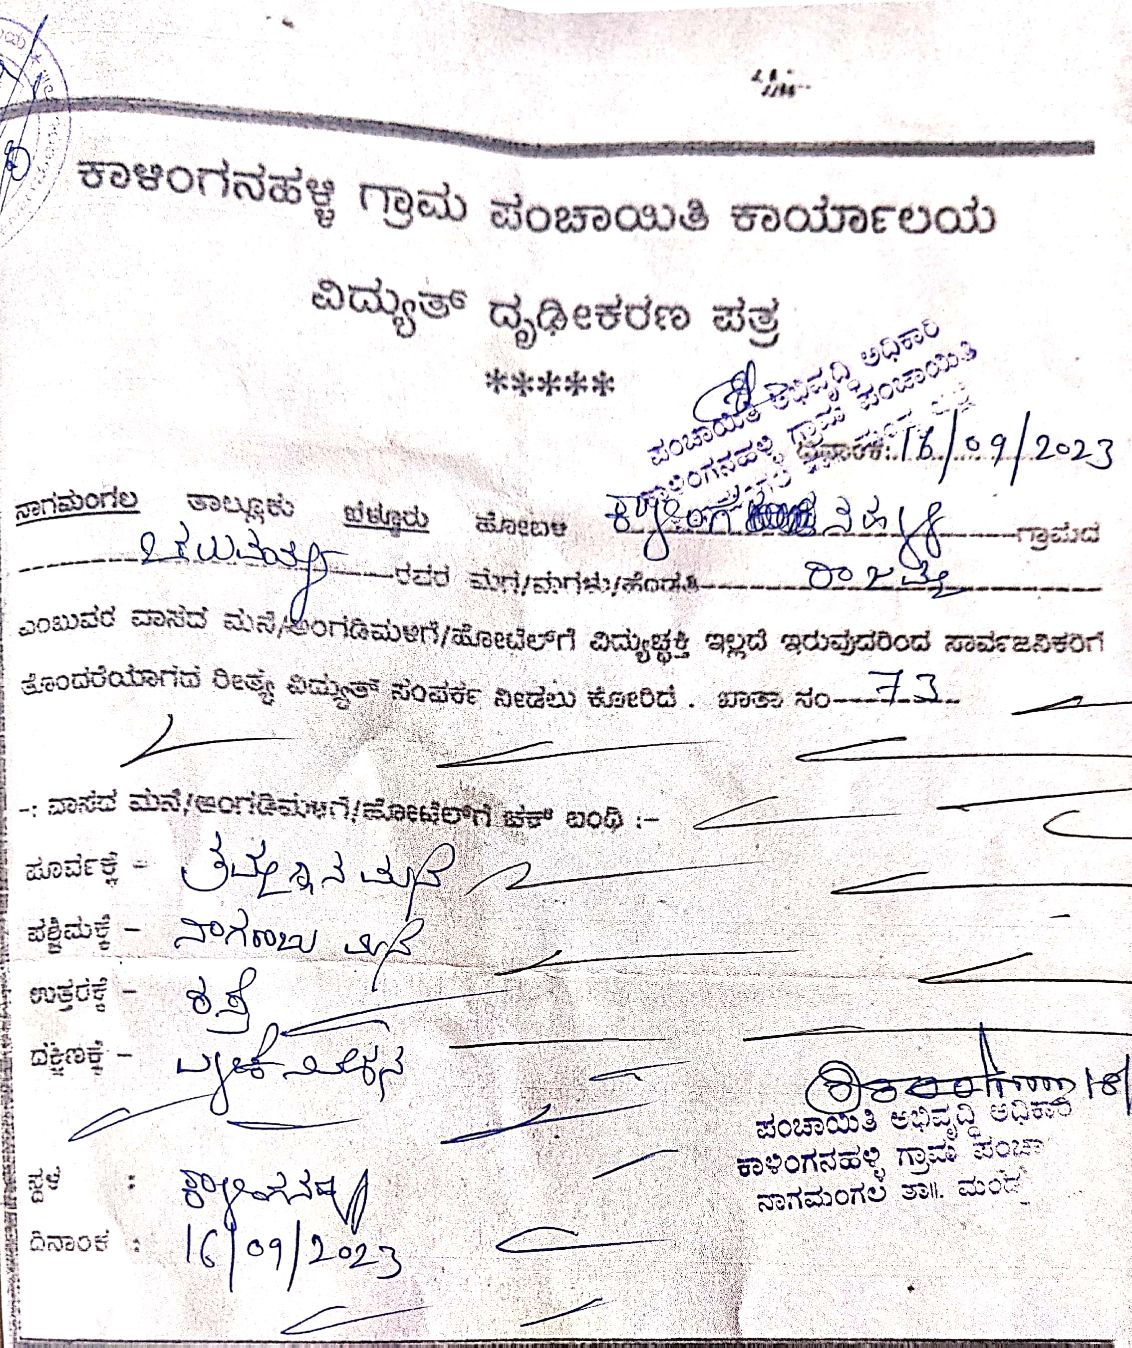 ಕಾಳಿಂಗನಹಳ್ಳಿ ಗ್ರಾಮ ಪಂಚಾಯಿತಿ ಕಾರ್ಯಾಲಯ
ವಿದ್ಯುತ್ ದೃಢೀಕರಣ ಪತ್ರ
*****
ಪಂಚಾಯಿತಿ ಅಭಿವೃದ್ಧಿ ಅಧಿಕಾರಿ
ಕಾಳಿಂಗನಹಳ್ಳಿ ಗ್ರಾಮ ಪಂಚಾಯಿತಿ
ದಿನಾಂಕ: 16/09/2023
ನಾಗಮಂಗಲ ತಾಲ್ಲೂಕು ಬೆಳ್ಳೂರು ಹೋಬಳಿ ಗ್ರಾಮದ
ರವರ ಮಗ/ಮಗಳು/ಹೆಂಡತಿ
ಎಂಬುವರ ವಾಸದ ಮನೆ/ಅಂಗಡಿಮಳಿಗೆ/ಹೋಟೆಲ್‌ಗೆ ವಿದ್ಯುಚ್ಛಕ್ತಿ ಇಲ್ಲದೆ ಇರುವುದರಿಂದ ಸಾರ್ವಜನಿಕರಿಗೆ
ತೊಂದರೆಯಾಗದ ರೀತ್ಯ ವಿದ್ಯುತ್ ಸಂಪರ್ಕ ನೀಡಲು ಕೋರಿದೆ . ಖಾತಾ ಸಂ 73
-: ವಾಸದ ಮನೆ/ಅಂಗಡಿಮಳಿಗೆ/ಹೋಟೆಲ್‌ಗೆ ಚಕ್ ಬಂಧಿ :-
ಪೂರ್ವಕ್ಕೆ - ಮನೆ
ಪಶ್ಚಿಮಕ್ಕೆ - ನಾಗರಾಜು ಮನೆ
ಉತ್ತರಕ್ಕೆ - ರಸ್ತೆ
ದಕ್ಷಿಣಕ್ಕೆ -
ಪಂಚಾಯಿತಿ ಅಭಿವೃದ್ಧಿ ಅಧಿಕಾರಿ
ಕಾಳಿಂಗನಹಳ್ಳಿ ಗ್ರಾಮ ಪಂಚಾ
ನಾಗಮಂಗಲ ತಾ॥. ಮಂಡ್ಯ
ಸ್ಥಳ :
ದಿನಾಂಕ : 16/09/2023